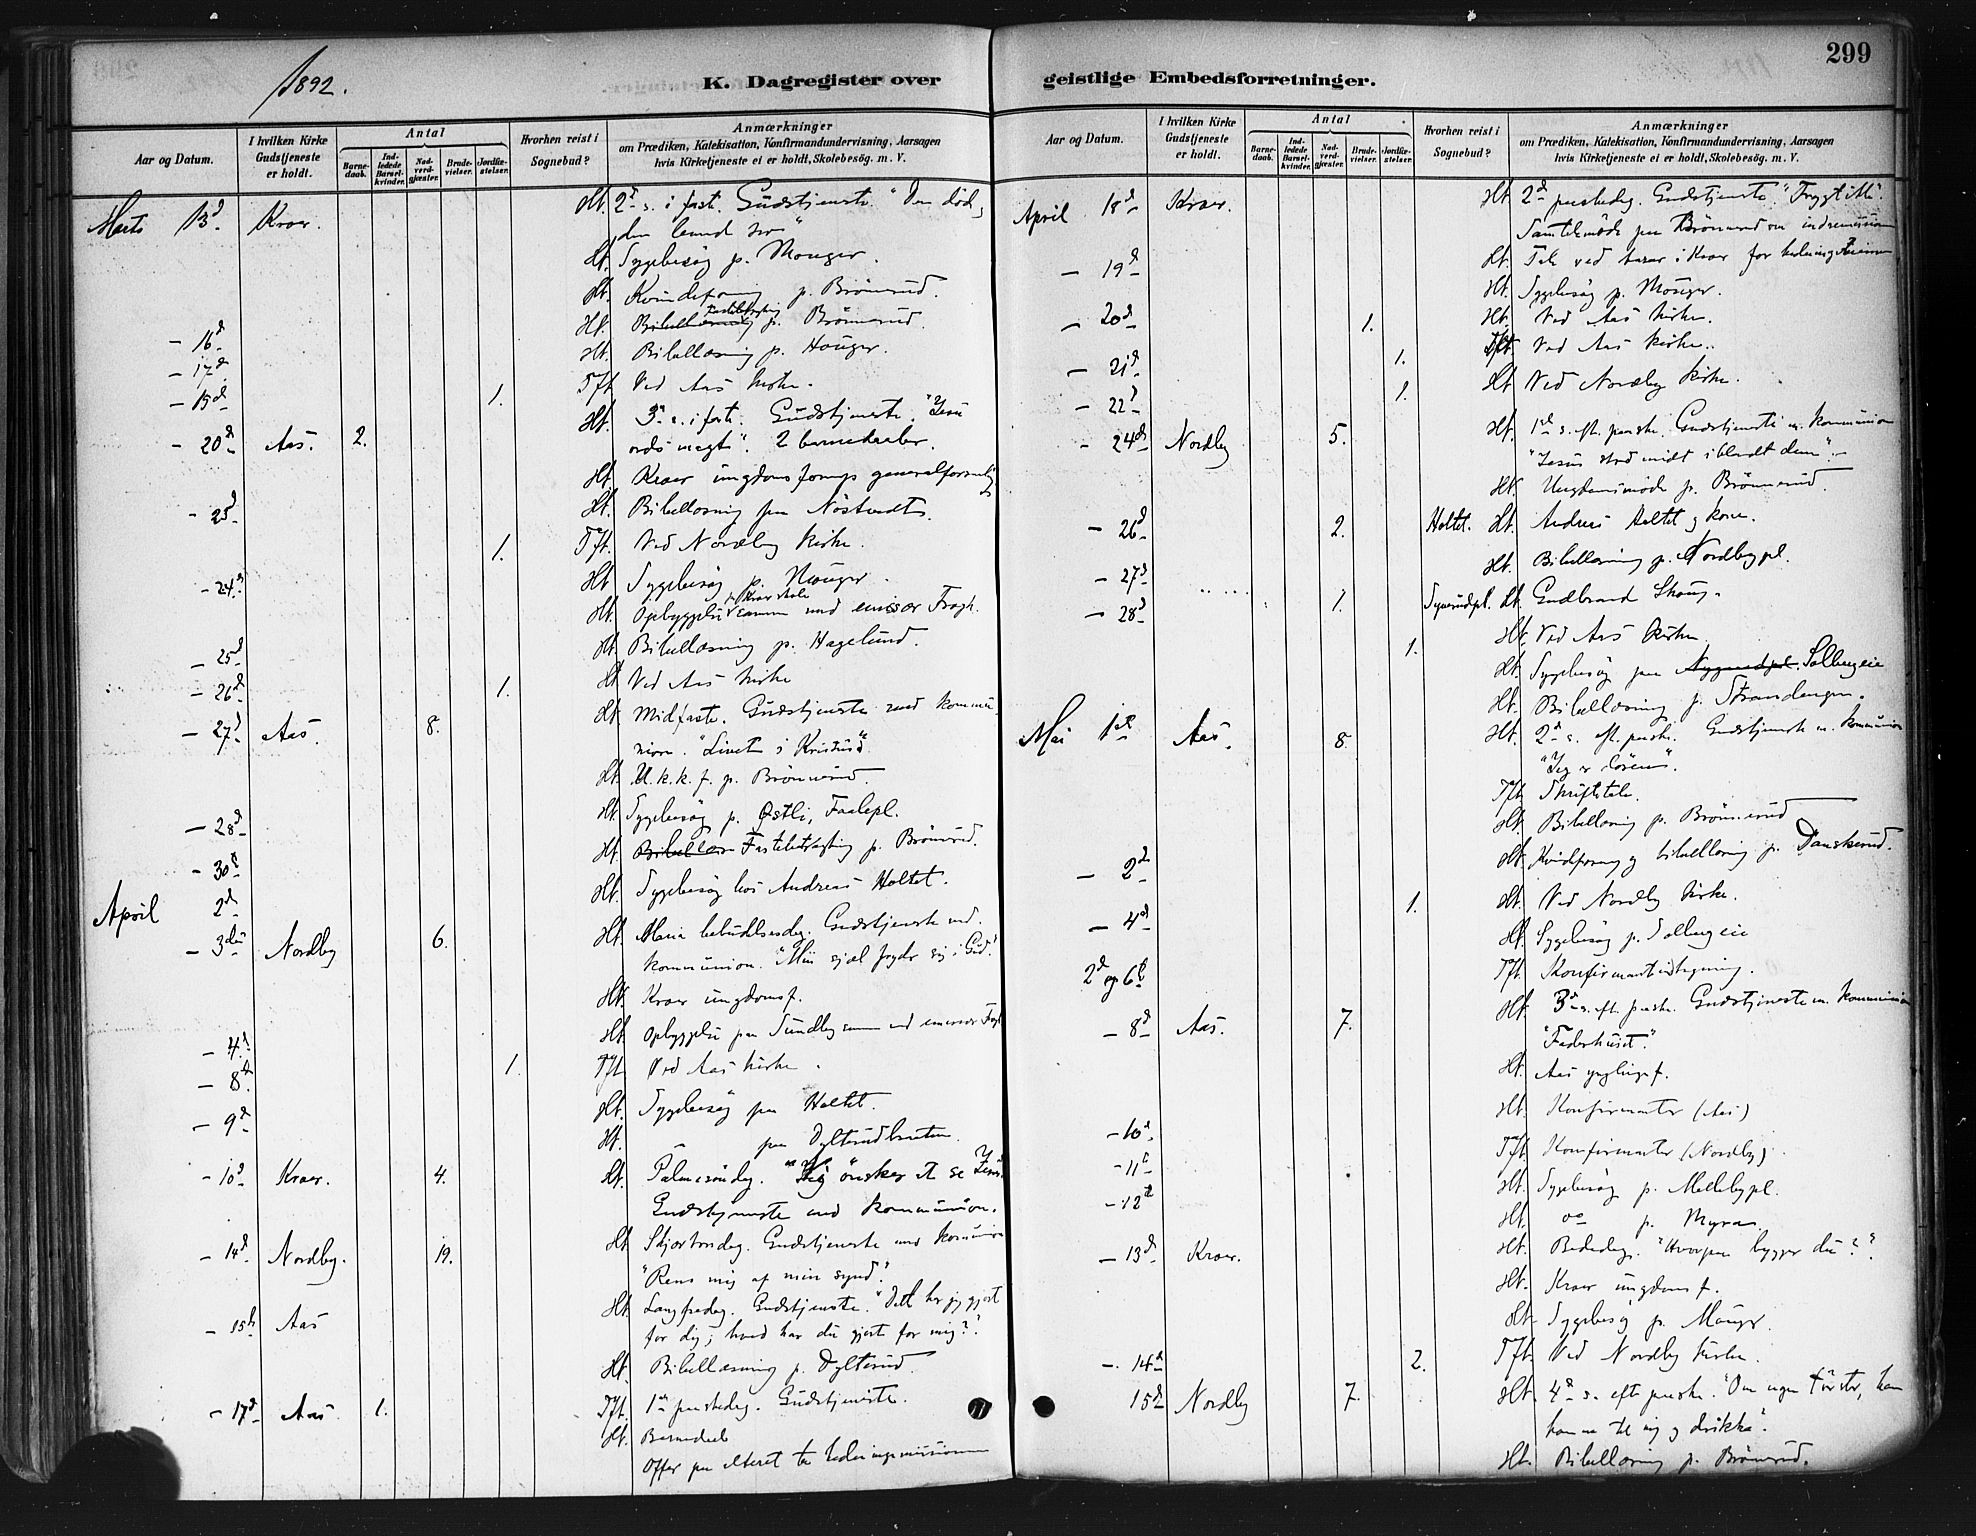 1892.
K. Dagregister over
Aar og Datum.
I hvilken Kirke Gudstjeneste er holdt.
Antal
Barnedaab.
Indledede Barselkvinder.
Nadverdgjæster.
Brudevielser.
Jordfæstelser.
Hvorhen reist i Sognebud?
Anmærkninger
om Prædiken, Katekisation, Konfirmandundervisning, Aarsagen
hvis Kirketjeneste ei er holdt, Skolebesøg. m. V.
Marts 13d Kroer. Ht. 2d s. i faste. Gudstjeneste. "Den død,
den levend
Ht. Sygebesøg p. Mouger.
Ht. Kvindeforening p. Brönnerud.
- 16d Ht. p. Brönnerud.
- 17d Ht. Bibellæsning p. Houger.
- 19d 1. Tft. Ved Aas kirke.
- 20d Aas. 2. Ht. 3d s. i faste. Gudstjeneste. "Jesu
ords magt". 2 barnedaaber.
Ht. Kroer ungdomsforngs generalforsmlg
- 23d Ht. Bibellæsning paa Nöstvedt.
1. Tft. Ved Nordby kirke.
- 24d Ht. Sygebesøg p. Mouger.
Ht. Opbyggelse med emissær
- 25d Ht. Bibellæsning p. Hagelund.
- 26d 1. Ht Ved Aas kirke
- 27d Aas. 8. Ht Midfaste. Gudstjeneste med kommu-
nion. "Livet i Kristus".
Ht. U.k.k.f. p. Brönnerud.
- 28d Ht. Sygebesøg p. Østli, Faalepl.
- 30d Ht. Fastebetragtning p. Brönnerud.
April 2d Ht. Sygebesøg hos Andreas Holtet.
- 3die Nordby 6. Ht. Maria bebudelsesdag. Gudstjeneste med
kommunion. "Min sjæl fryder sig i Gud."
Ht. Kroer ungdomsf.
- 4d Ht. Opbyggelse paa Sundby emissær
- 8d 1. Tft Ved Aas kirke.
- 9d Ht. Sygebesøg paa Holtet.
Ht. paa Dyltrudbraaten.
- 10d Kroer. 4. Ht. Palmesöndag. önsker at se Jesus.
Gudstjeneste med kommunion.
- 14d Nordby. 19. Ht Skjærtorsdag. Gudstjeneste med kommunion
"Rens mig af min synd".
- 15d Aas Ht. Langfredag. Gudstjeneste. "Det har jeg gjort
for dig; hvad har du gjort for mig?".
Ht. Bibellæsning p. Dyltrud.
- 17d Aas. 1. Tft. 1ste paaskedag. Gudstjeneste.
Ht. Barnedaab
Offer paa alteret til hedningemissionen
299
geistlige Embedsforretninger.
Aar og Datum.
I hvilken Kirke Gudstjeneste er holdt.
Antal
Barnedaab.
Indledede Barselkvinder.
Nadverdgjæster.
Brudevielser.
Jordfæstelser.
Hvorhen reist i Sognebud?
Anmærkninger
om Prædiken, Katekisation, Konfirmandundervisning, Aarsagen
hvis Kirketjeneste ei er holdt, Skolebesög. m. V.
April 18d Kroer. Ht 2d paaskedag. Gudstjeneste. "Frygt ikke".
Samtalemöde paa Brönnerud om indremission
- 19d Ht. Tale ved i Kroer for
Ht. Sygebesøg p. Mouger.
- 20d 1. Ht. Ved Aas kirke.
- 21d 1. Tft Ved Aas kirke.
- 22d 1. Ht Ved Nordby kirke.
- 24d Nordby 5. Ht. 1ste s. eft. paaske. Gudstjeneste m. kommunion
"Jesus stod midt iblandt dem".
Ht. Ungdomsmöde p. Brönnerud.
- 26d 2. Holtet. Ht. Andreas Holtet og kone.
- 27d Ht. Bibellæsning p. Nordbypl.
- 28d 1. Ht. Gudbrand Skoug.
1. Ht. Ved Aas kirke
Ht. Sygebesøg paa Solbergeie
Ht. Bibellæsning p. Strandengen.
Mai 1ste Aas. 8. Ht. 2d s. eft. paaske. Gudstjeneste m. kommunion
"Jeg er dören".
Tft Skriftetale.
Ht. Bibellæsning p. Brönnerud
- 2d Ht. Kvindforening og bibellæsning p. Danskerud.
1. Ht. Ved Nordby kirke.
- 4d Ht. Sygebesøg p. Solbergeie
2d og 6te Tft. Konfirmantindtegning.
- 8d Aas. 7. Ht 3d s. eft. paaske. Gudstjeneste m. kommunion
"Faderhuset".
Ht. Aas ynglingef.
- 10d Ht. Konfirmanter (Aas)
- 11te Tft. Konfirmanter (Nordby)
- 12te Ht. Sygebesøg p. Mellebypl.
Ht. do p. Myra.
- 13d Kroer. Ht. Bededag. "Hvorpaa bygger du?".
Ht. Kroer ungdomsf.
Ht. Sygebesøg p. Mouger.
- 14d 2. Tft. Ved Nordby kirke.
15d Nordby 7. Ht. 4d s. efter paaske. "Om nogen törster, han
komme til mig og drikke".
Ht. Bibellæsning p. Brönnerud.